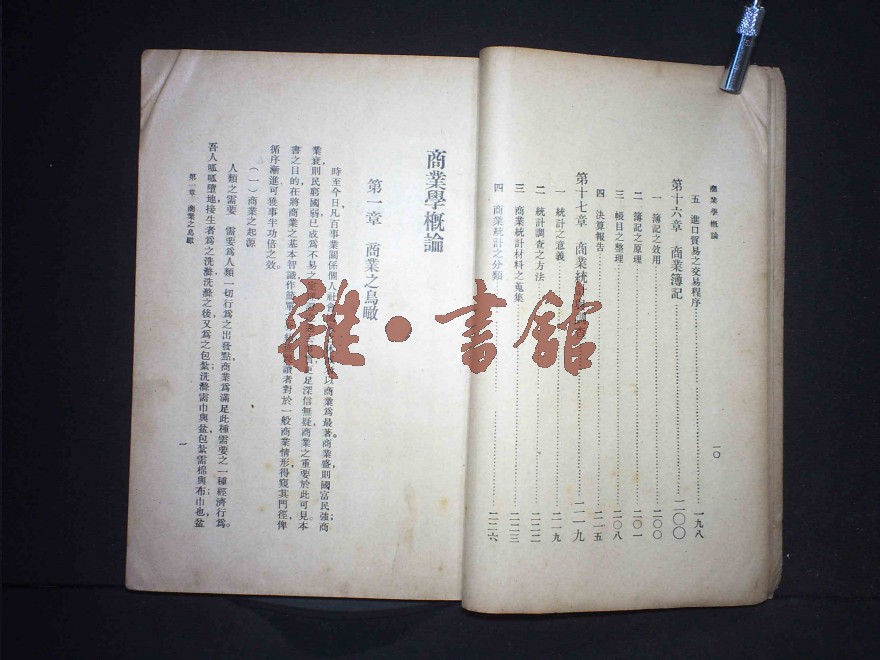 商業學概論
一〇
五 進口貿易之交易程序……一九八
第十六章 商業簿記……二〇〇
一 簿記之效用……二〇〇
二 簿記之原理……二〇一
三 帳目之整理……二〇八
四 決算報告……二一五
第十七章 商業統計……二一九
一 統計之意義……二一九
二 統計調查之方法……二二二
三 商業統計材料之蒐集……二二三
四 商業統計之分類……二二六
商業學概論
第一章 商業之鳥瞰
時至今日,凡百事業關係個人社會以商業爲最著。商業盛則國富民強;商
業衰則民窮國弱,已成爲不易之足深信無疑,商業之重要於此可見。本
書之目的,在將商業之基本智識作簡單讀者對於一般商業情形得窺其門徑,俾
循序漸進,可獲事半功倍之效。
(一)商業之起源
人類之需要 需要爲人類一切行爲之出發點,商業爲滿足此種需要之一種經濟行爲。
吾人呱呱墮地,接生者爲之洗滌,洗滌之後,又爲之包紮;洗滌需巾與盆,包紮需棉與布;巾也,盆
第一章 商業之鳥瞰
一
雜·書館